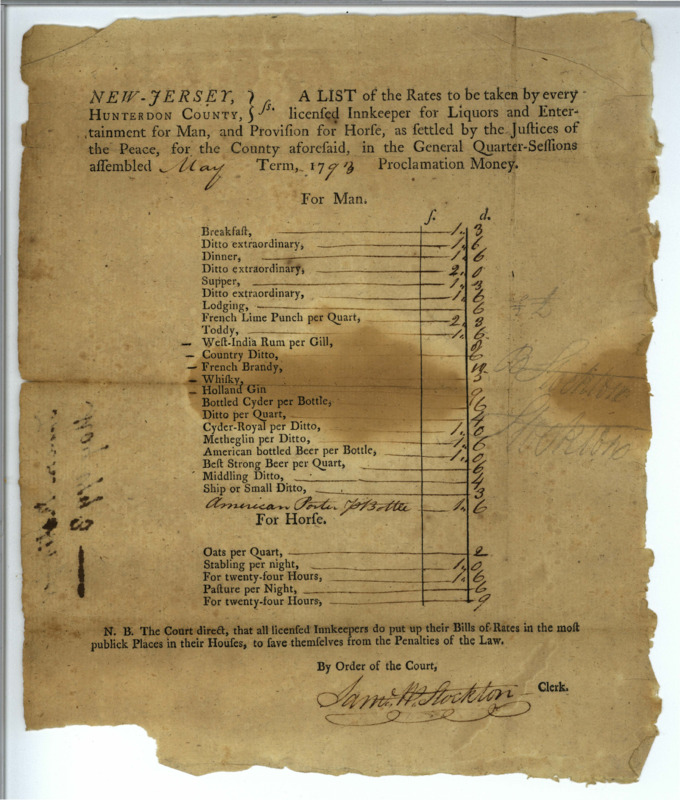 NEW-JERSEY, } ſs. A LIST of the Rates to be taken by every
HUNTERDON COUNTY, licenſed Innkeeper for Liquors and Enter-
tainment for Man, and Proviſion for Horſe, as ſettled by the Juſtices of
the Peace, for the County aforeſaid, in the General Quarter-Seſſions
aſſembled May Term, 1793 Proclamation Money.
For Man.
ſ. d.
Breakfaſt, 1. 3
Ditto extraordinary, 1. 6
Dinner, 1. 6
Ditto extraordinary, 2. 0
Supper, 1. 3
Ditto extraordinary, 1. 6
Lodging, 6
French Lime Punch per Quart, 2. 3
Toddy, 1. 6
— Weſt-India Rum per Gill,
— Country Ditto, 6
— French Brandy,
— Whiſky,
— Holland Gin 9
Bottled Cyder per Bottle, 6
Ditto per Quart, 4
Cyder-Royal per Ditto, 1. 0
Metheglin per Ditto, 1. 6
American bottled Beer per Bottle, 1. 0
Beſt Strong Beer per Quart, 6
Middling Ditto, 4
Ship or Small Ditto, 3
American Porter ⅌ Bottle 1. 6
For Horſe.
Oats per Quart, 2
Stabling per night, 1. 0
For twenty-four Hours, 1. 6
Paſture per Night, 6
For twenty-four Hours, 9
N. B. The Court direct, that all licenſed Innkeepers do put up their Bills of Rates in the moſt
publick Places in their Houſes, to ſave themſelves from the Penalties of the Law.
By Order of the Court,
Saml. W. Stockton Clerk.